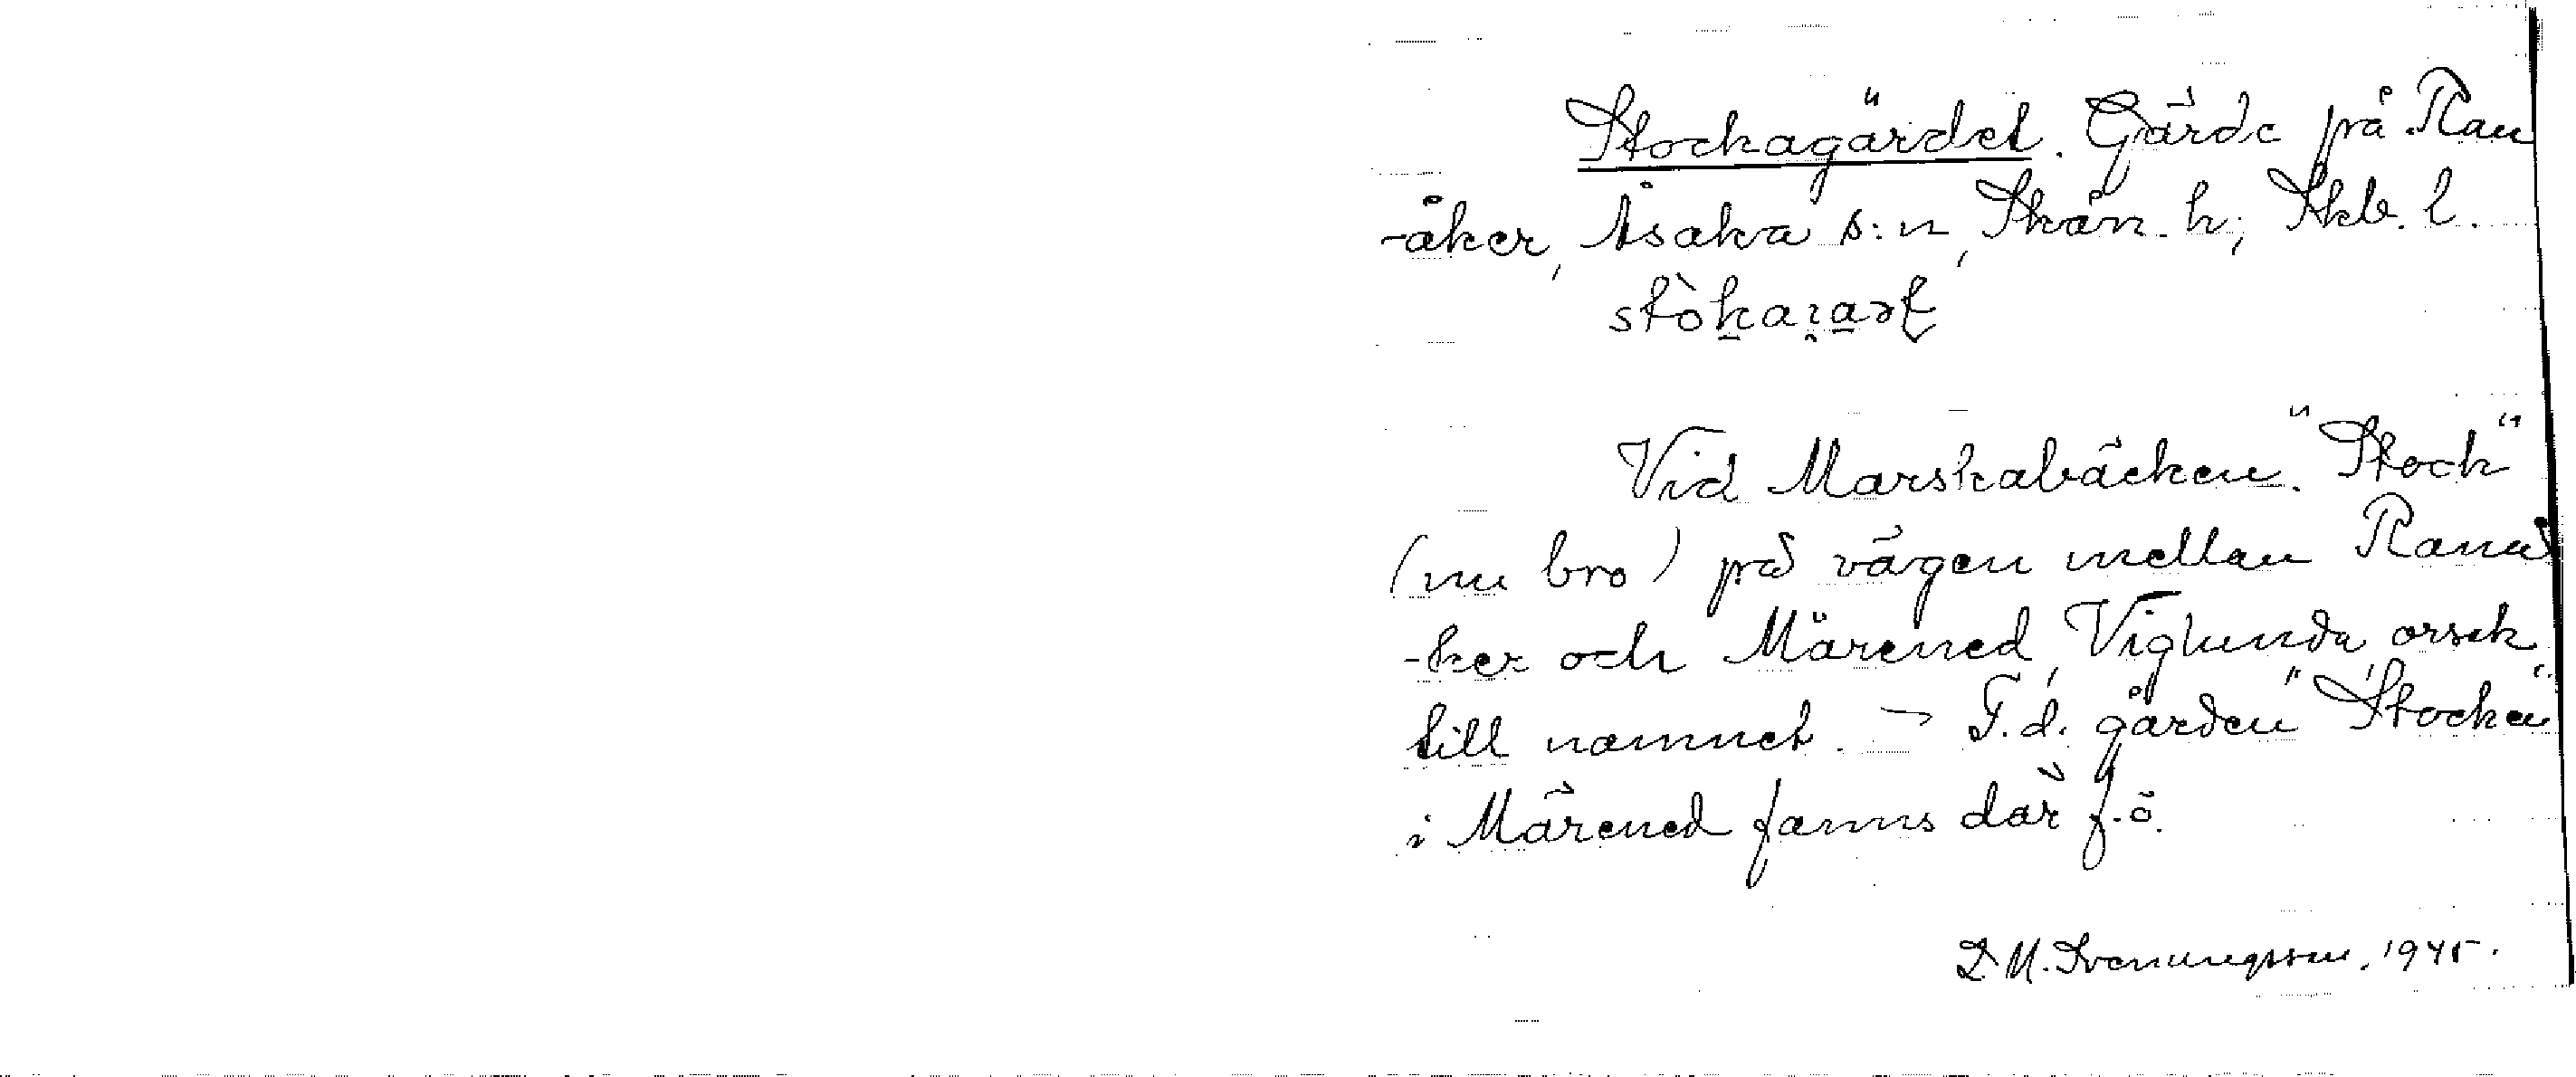 Stockagärdet. Gärde på Ran
-åker, Åsaka s:n, Skån. h., Skb. l.
Vid Marskabäcken. "Stock"
(nu bro) på vägen mellan Ranå
-ker och Märened, Viglunda, orsak
till namnet. - F.d. gården "Stocken"
i Märened fanns där f.ö.
D.M. Svenungsson, 1945.